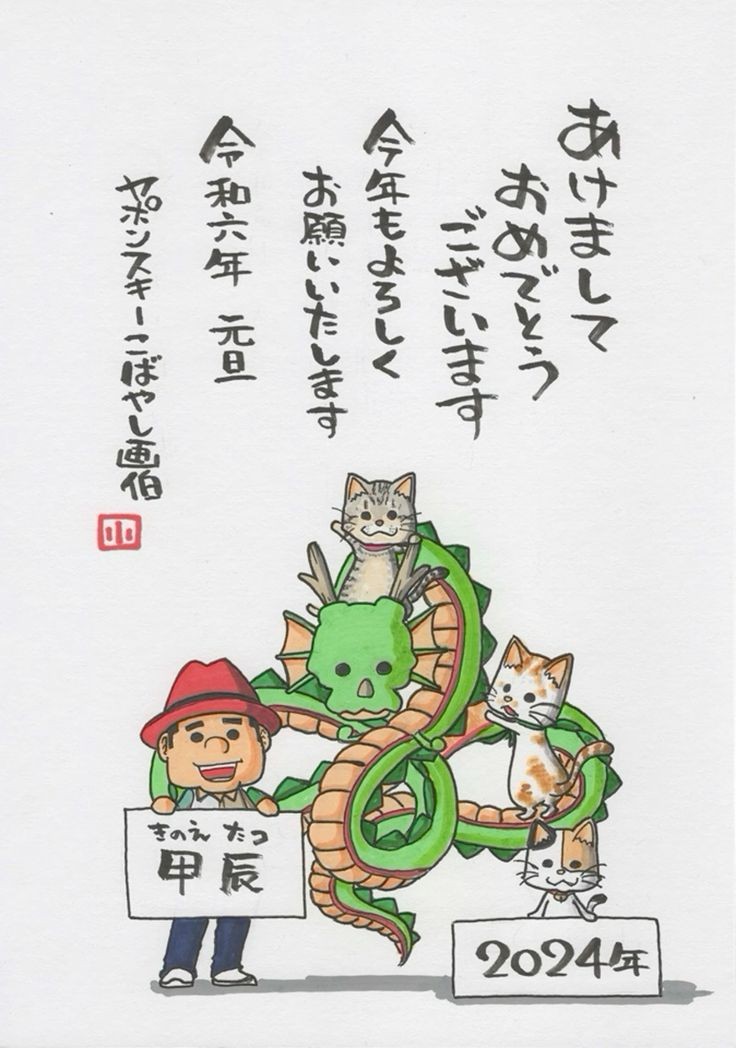 あけまして
おめでとう
ございます
今年もよろしく
お願いいたします
令和六年 元旦
ヤポンスキーこばやし画伯
小
きのえ たつ
甲辰
2024年